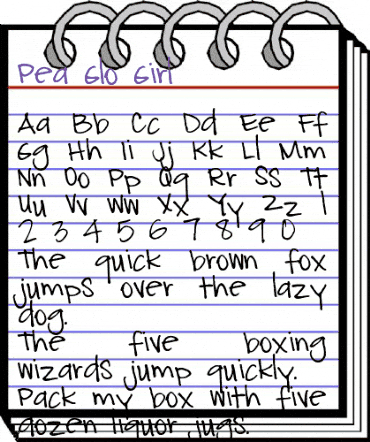 Pea Glo Girl
Aa Bb Cc Dd Ee Ff
Gg Hh Ii Jj Kk Ll Mm
Nn Oo Pp Qq Rr Ss Tt
Uu Vv Ww Xx Yy Zz 1
2 3 4 5 6 7 8 9 0
The quick brown fox
jumps over the lazy
dog.
The five boxing
wizards jump quickly.
Pack my box with five
dozen liquor jugs.